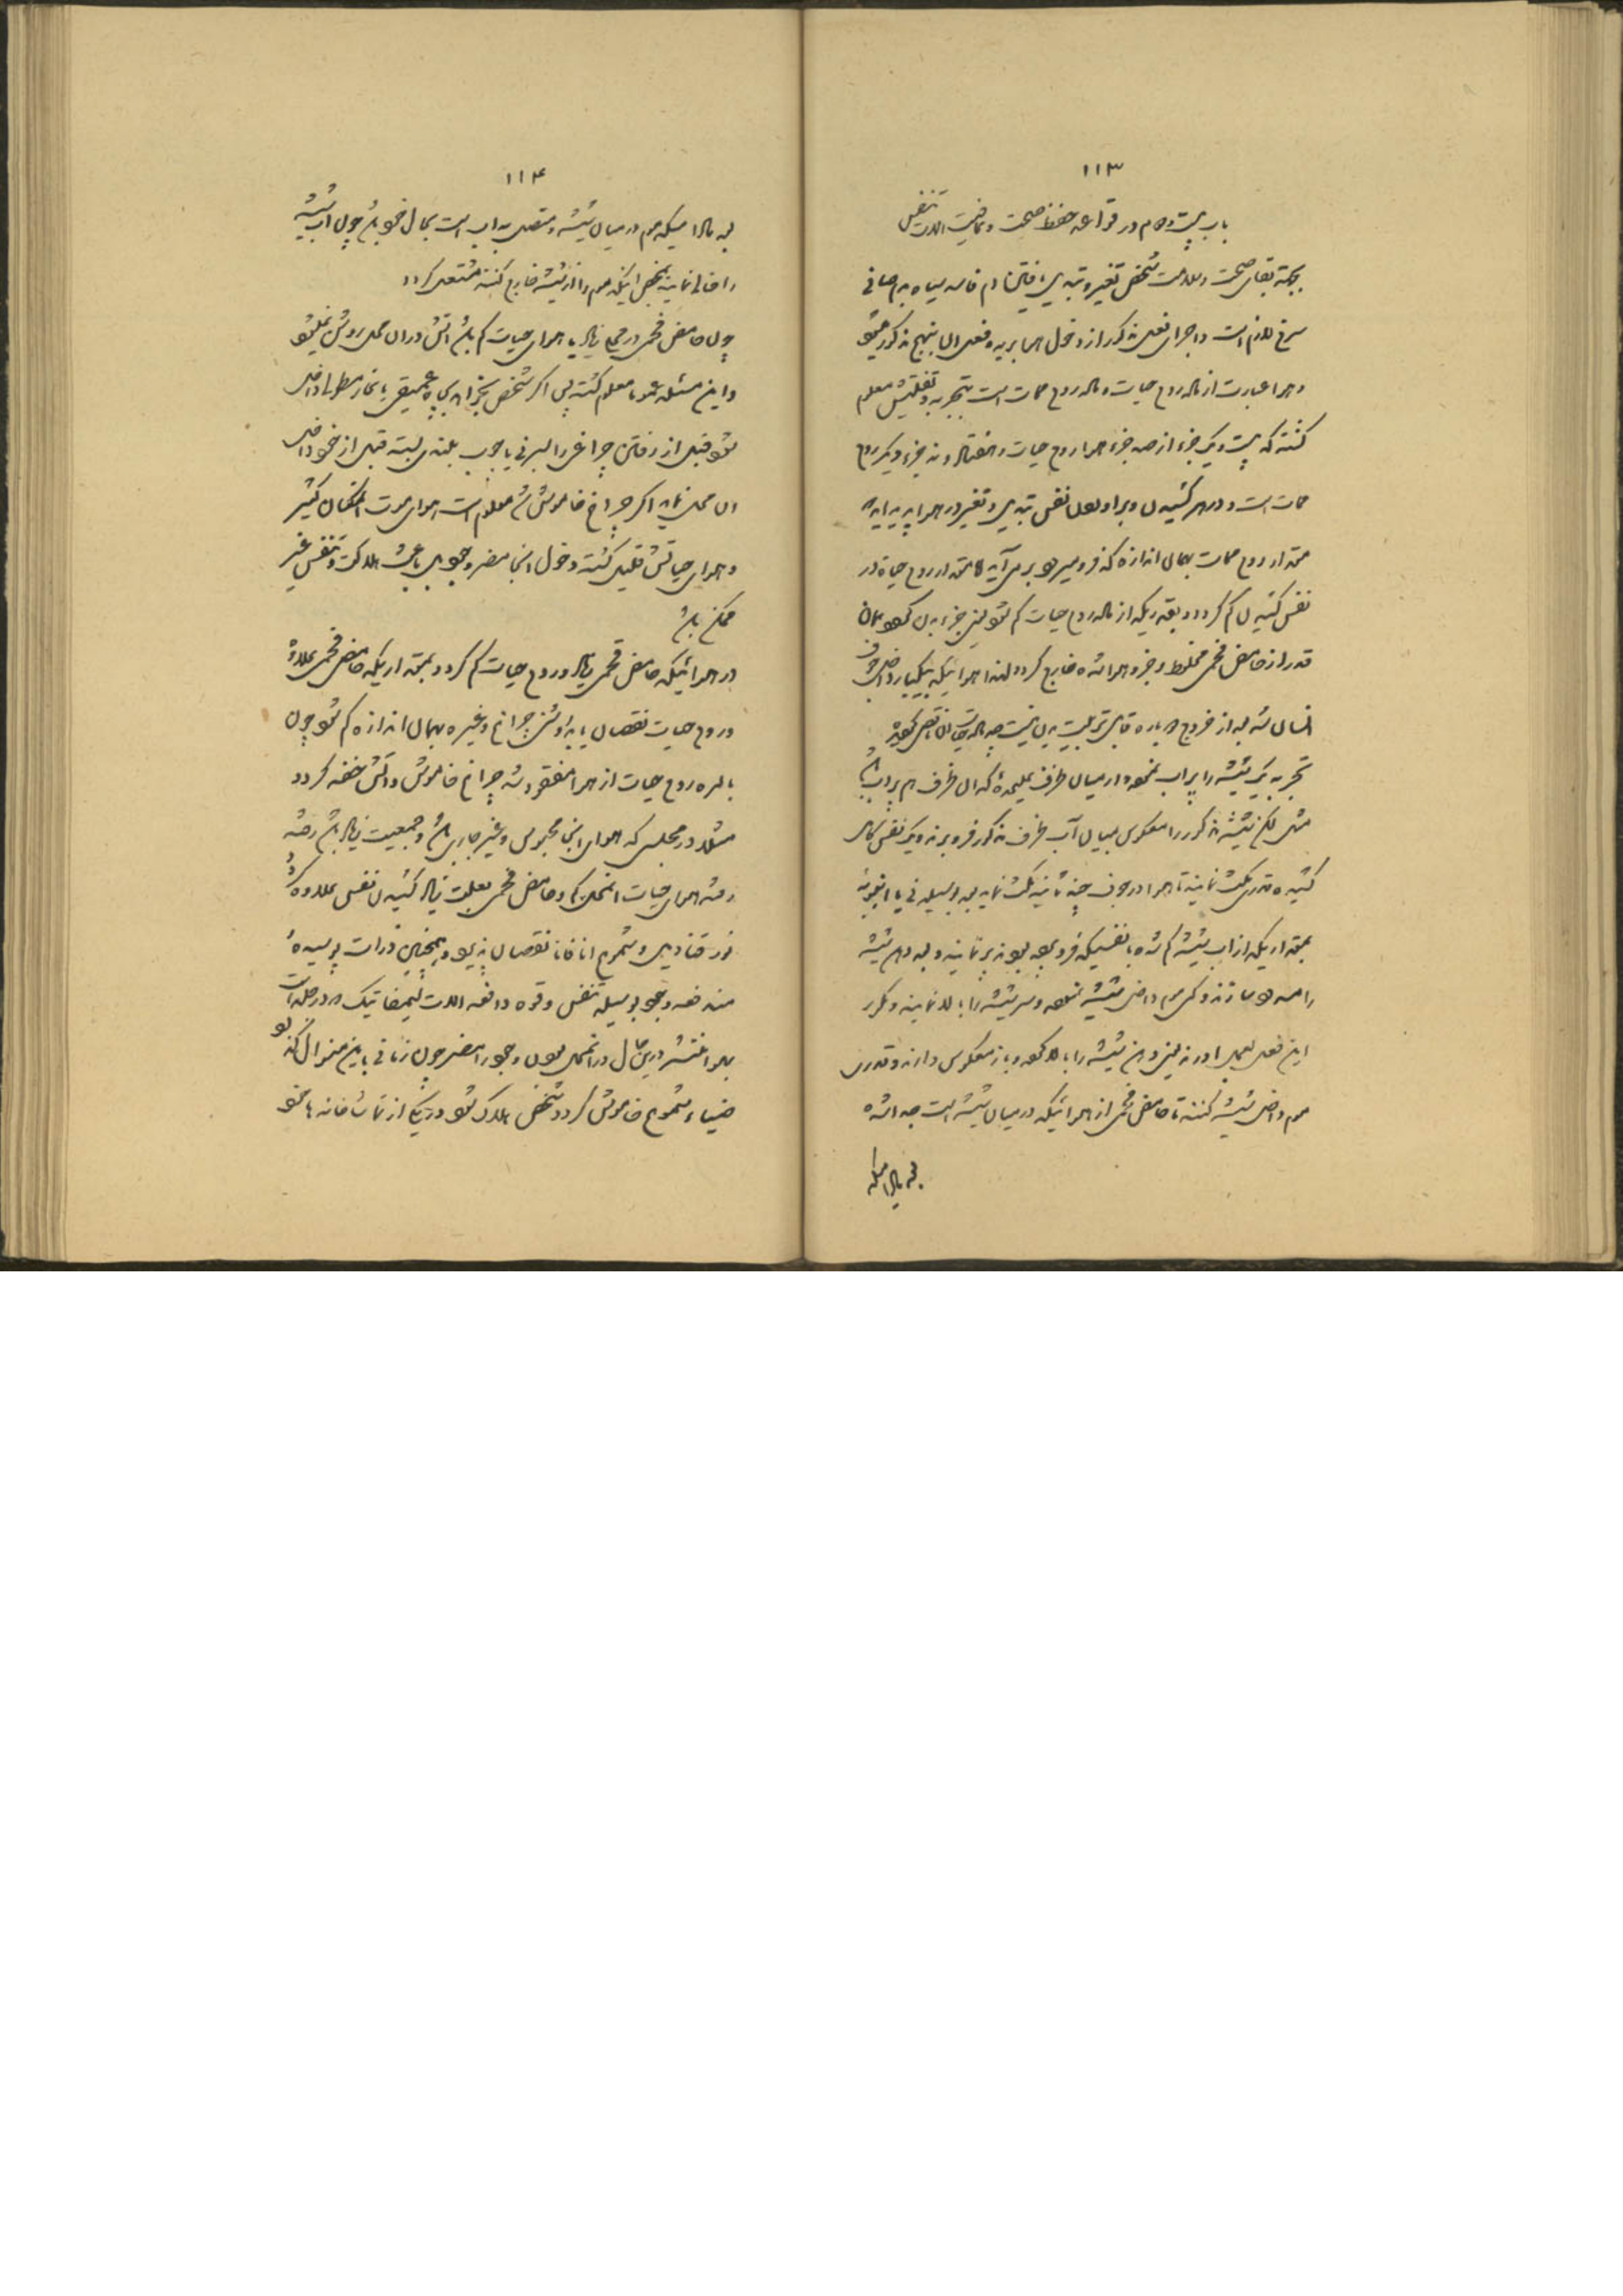 ۱۱۳
باب بیست و دهم در قواعد حفظ صحت و عافیت الات تنفس
بجهة بقای صحت و سلامت شخص تغییر و تبدیل یافتن دم فاسد سیاه بدم صافی
سرخ لازم است و اجرای فعل مذکور از دخول هوا بریه و فعل ان بنهج مذکور میشود
و هوا عبارت از ماده روح حیات و ماده روح ممات است بتجربه و تفتیش معلوم
گشته که بیست و یک جزء از صد جزء هوا روح حیات و هفتاد و نه جزء دیگر روح
ممات است و در هر کشیدن و براوردن نفس تبدیل و تغییر در هوا پدید اید
مقدار روح ممات بهمان اندازه که فرو میرود بر می آید اما مقدار روح حیاة در
نفس کشیدن کم گردد و بقدریکه از ماده روح حیات کم شود یعنی جزء بدن گردد همان
قدر از حامض فحمی مخلوط و جزو هوا شده خارج گردد لهذا هوائیکه یکبار داخل جوف
انسان شد بعد از خروج دوباره قابل تربیت بدن نیست چه ماده حیات ان ناقص گردیده
تجربه یک شیشه را پر اب نموده در میان ظرف علیحدهٔ که ان ظرف هم پر اب باشد
مثل لگن شیشه مذکور را معکوس بمیان آب ظرف مذکور فرو برند و یک نفس کامل
کشیده قدری مکث نمایند تا هوا در جوف چند ثانیه مکث نماید بعد بوسیله نی یا انبوبه
بمقداریکه از اب شیشه کم شده نفسیکه فرو برده بودند پر نمایند و بعد دهن شیشه
را مسدود سازند و کمی موم داخل شیشه نموده و سر شیشه را بالا نمایند و مکرر
این فعل بعمل اورند یعنی دهن شیشه را بالا کرده و باز معکوس دارند و قدری
موم داخل شیشه کنند تا حامض فحمی از هوائیکه در میان شیشه است جدا شده
بعد مادامیکه
۱۱۴
بعد مادامیکه موم در میان شیشه و متصل به اب است بحال خود باشد چون اب شیشه
را خالی نمایند بمحض اینکه موم را از شیشه خارج کنند مشتعل گردد
چون حامض فحمی در محلی زیاد یا هوای حیات کم باشد اتش در ان محل روشن نمیشود
و این مسئله عموما معلوم گشته پس اگر شخص بخواهد بچاه عمیقی یا بغار مظلمی داخل
شود قبل از رفتن چراغی را بسر نی یا چوب بلندی بسته قبل از خود داخل
ان محل نماید اگر چراغ خاموش شد معلوم است هوای موت انمکان کثیر
و هوای حیاتش قلیل گشته و دخول انجا مضر و وجودی باعث هلاکت و تنفس غیر
ممکن باشد
در هوائیکه حامض فحمی زیاد و روح حیات کم گردد بمقداریکه حامض فحمی علاوه
و روح حیات نقصان یابد روشنی چراغ و غیره بهمان اندازه کم شود چون
بالمره روح حیات از هوا مفقود شد چراغ خاموش و اتش خفه گردد
مثلا در مجلسی که هوای انجا محبوس و غیر جاری باشد و جمعیت زیاد باشد رفته
رفته هوای حیات انمحل کم و حامض فحمی بعلت زیاد کشیدن نفس علاوه گردد
نور قنادیل و شموع انا فانا نقصان پذیرد و همچنین ذرات پوسیدهٔ
مندفعه وجود بوسیله تنفس و قوه دافعه الات لیمفاتیک و در جلد ات
بهوا منتشر درین حال در انمحل بودن وجود را مضر چون زمانی باین منوال گذرد
ضیاء شموع خاموش گردد شخص هلاک شود در یکی از تماشاخانه ها نحو